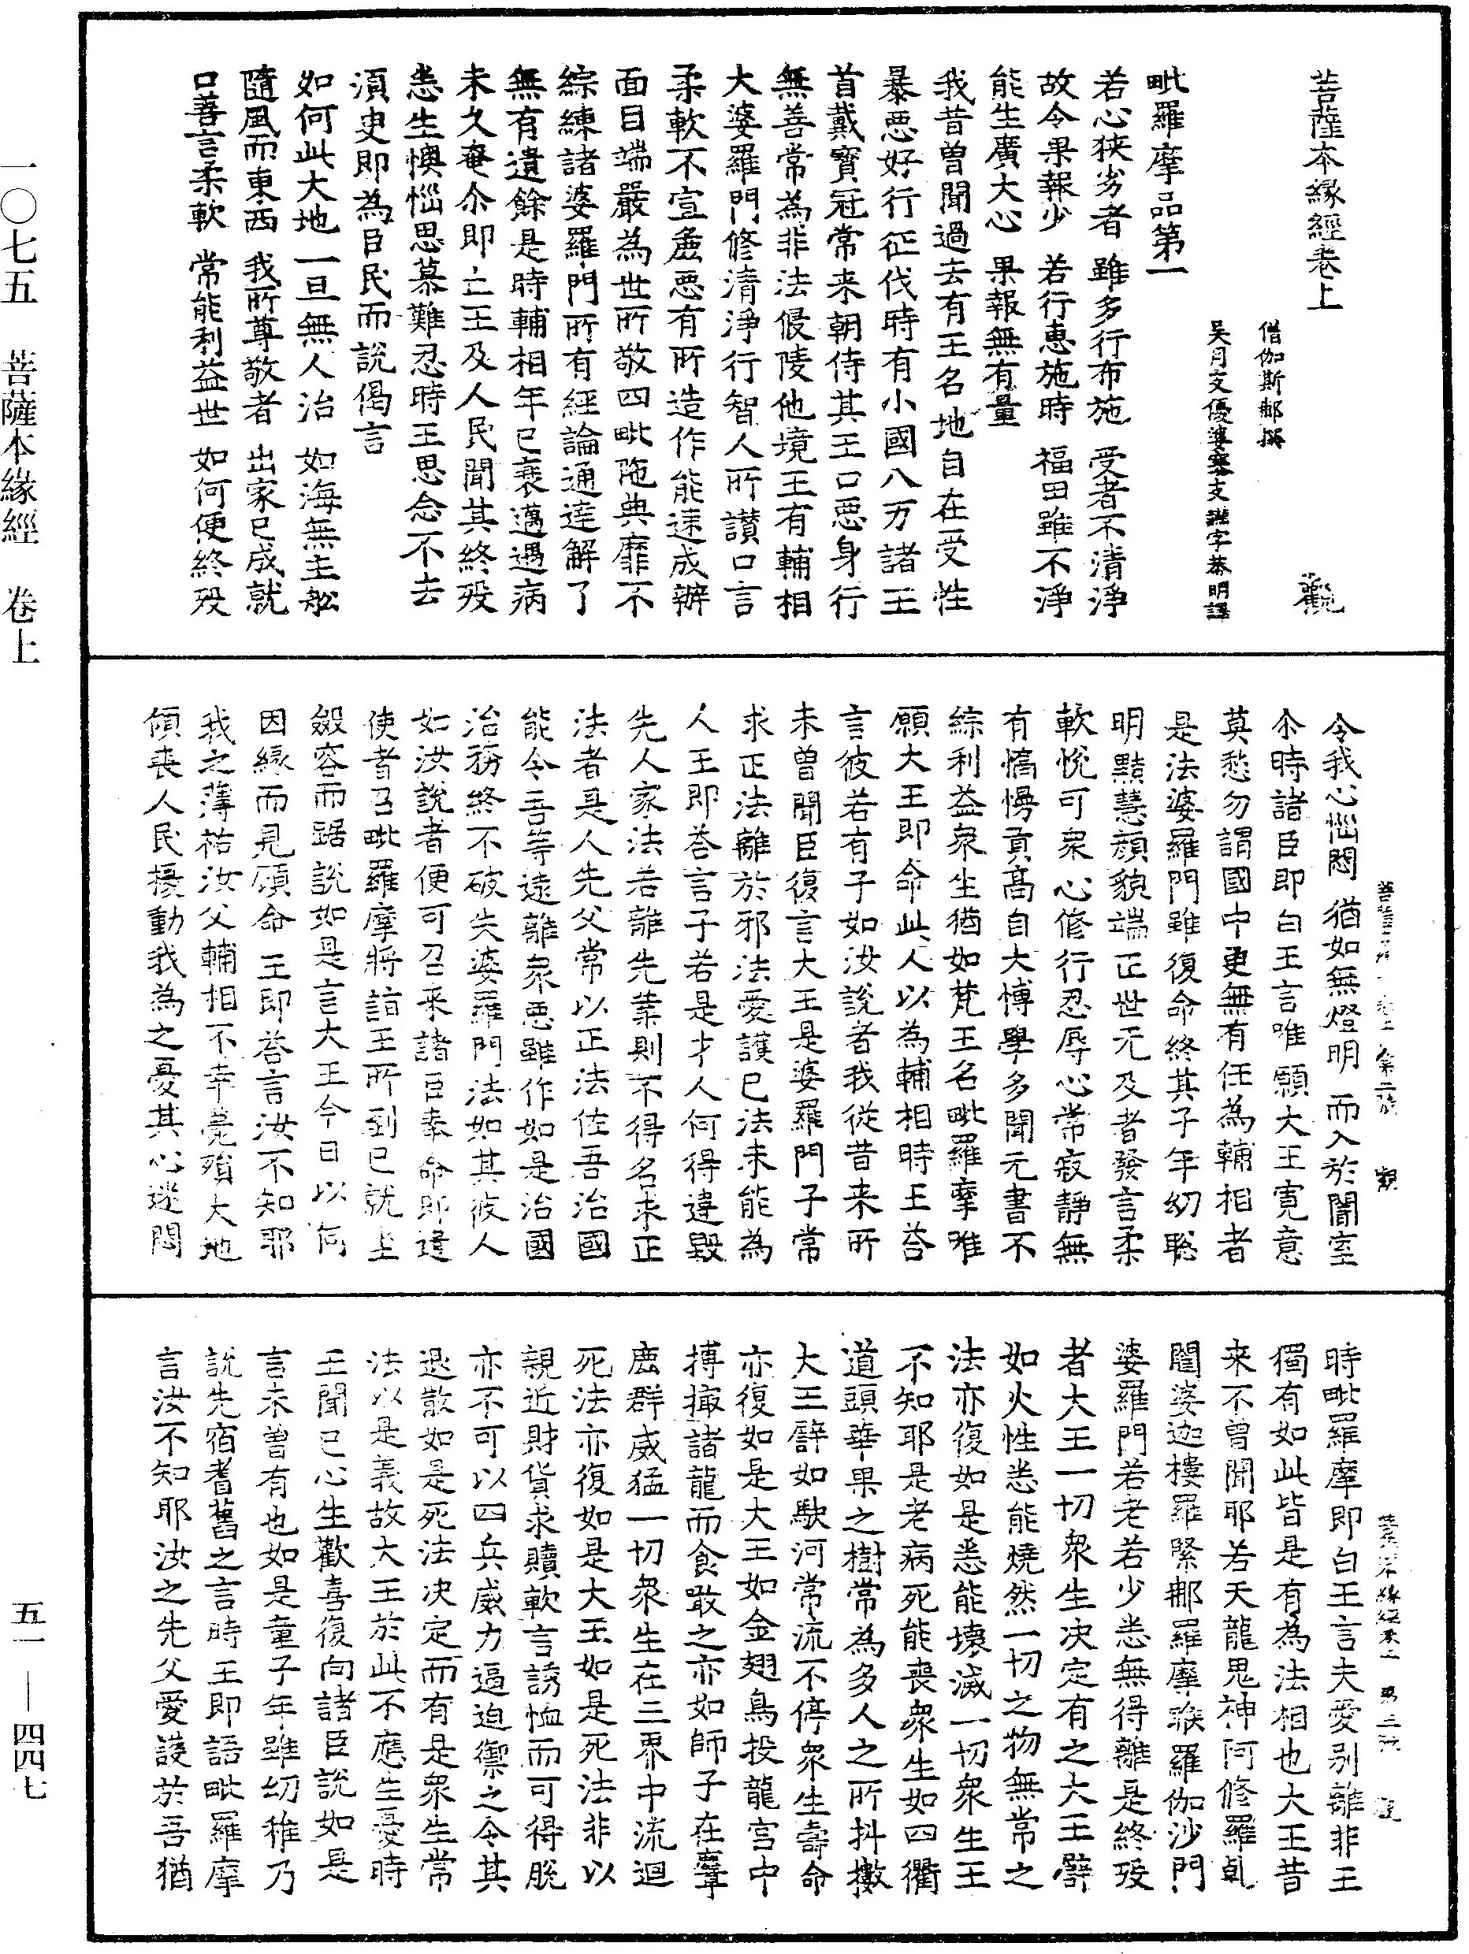 菩薩本緣經卷上 觀
僧伽斯郍撰
吴月支優婆塞支謙字恭明譯
毗羅摩品第一
若心狹劣者 雖多行布施 受者不清淨
故令果報少 若行惠施時 福田雖不淨
能生廣大心 果報無有量
我昔曾聞過去有王名地自在受性
暴惡好行征伐時有小國八万諸王
首戴寶冠常来朝侍其王口惡身行
無善常為非法侵陵他境王有輔相
大婆羅門修清淨行智人所讃口言
柔軟不宣麁惡有所造作能速成辦
面目端嚴為世所敬四毗陁典靡不
綜練諸婆羅門所有經論通達解了
無有遺餘是時輔相年已衰邁遇病
未久奄尒即亡王及人民聞其終歿
悉生懊惱思慕難忍時王思念不去
須臾即為臣民而說偈言
如何此大地 一旦無人治 如海無主舩
隨風而東西 我所尊敬者 出家已成就
口善言柔軟 常能利益世 如何便終歿
令我心惱悶 猶如無燈明 而入於闇室
尒時諸臣即白王言唯願大王寬意
莫愁勿謂國中更無有任為輔相者
是法婆羅門雖復命終其子年幼聡
明黠慧顏貌端正世无及者發言柔
軟悅可衆心修行忍辱心常寂靜無
有憍慢貢髙自大博學多聞元書不
綜利益衆生猶如梵王名毗羅摩唯
願大王即命此人以為輔相時王荅
言彼若有子如汝說者我從昔来所
未曾聞臣復言大王是婆羅門子常
求正法離於邪法愛護已法未能為
人王即荅言子若是才人何得違毀
先人家法若離先業則不得名求正
法者是人先父常以正法佐吾治國
能令吾等遠離衆惡雖作如是治國
治務終不破失婆羅門法如其彼人
如汝說者便可召来諸臣奉命即遣
使者召毗羅摩將詣王所到已就坐
斂容而踞說如是言大王今日以何
因緣而見顧命 王即荅言汝不知耶
我之薄祐汝父輔相不幸薨殞大地
傾喪人民擾動我為之憂其心迷悶
時毗羅摩即白王言夫愛别離非王
獨有如此皆是有為法相也大王昔
来不曾聞耶若天龍鬼神阿修羅乹
闥婆迦樓羅緊郍羅摩睺羅伽沙門
婆羅門若老若少悉無得離是終歿
者大王一切衆生决定有之大王譬
如火性悉能燒然一切之物無常之
法亦復如是悉能壞滅一切衆生王
不知耶是老病死能喪衆生如四衢
道頭華果之樹常為多人之所抖擻
大王譬如駛河常流不停衆生壽命
亦復如是大王如金翅鳥投龍宫中
搏撮諸龍而食噉之亦如師子在羣
鹿群威猛一切衆生在三界中流迴
死法亦復如是大王如是死法非以
親近財貨求贖軟言誘恤而可得脫
亦不可以四兵威力逼迫禦之令其
退散如是死法决定而有是衆生常
法以是義故大王於此不應生憂時
王聞已心生歡喜復向諸臣說如是
言未曾有也如是童子年雖幼稚乃
說先宿耆舊之言時王即語毗羅摩
言汝不知耶汝之先父愛護於吾猶
一〇七五 菩薩本緣經 卷上
五一—四四七